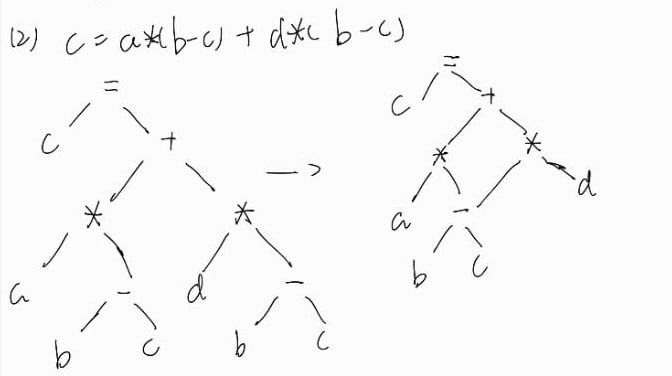 (2) c = a*(b-c) + d*( b-c)
=
c +
* *
a - d -
b c b c
->
=
c +
* *
a - d
b c